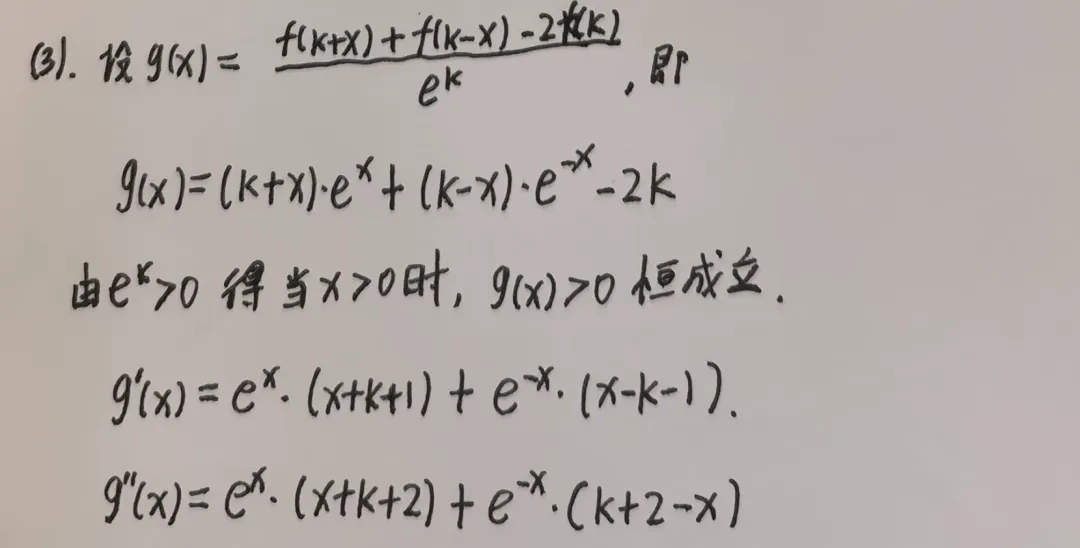 (3). 设 g(x) = \frac{f(k+x) + f(k-x) - 2f(k)}{e^k}, 即
g(x) = (k+x)·e^x + (k-x)·e^{-x} - 2k
由 e^k > 0 得 当 x > 0 时, g(x) > 0 恒成立.
g'(x) = e^x · (x+k+1) + e^{-x} · (x-k-1).
g''(x) = e^x · (x+k+2) + e^{-x} · (k+2-x)